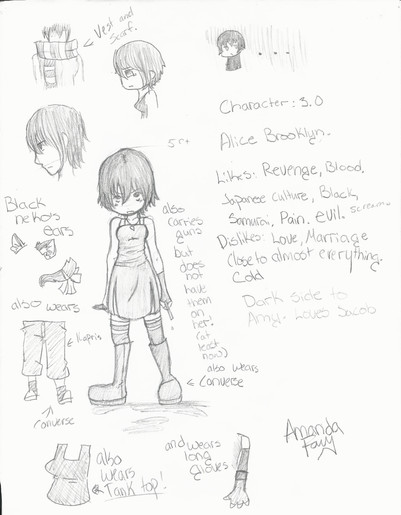 Vest and
Scarf.
....
5 ft
Character: 3.0
Alice Brooklyn.
Likes: Revenge, Blood,
Japanese culture, Black,
Samurai, Pain. evil. Screams
Dislikes: Love, Marriage
Close to almost everything.
Cold
Dark side to
Amy. Loves Jacob
Black
nekos
ears
also wears
Kapris
Converse
also
carries
guns
but
does
not
have
them
on
her!
(at
least
now)
also wears
Converse
also
wears
Tank top!
and wears
long
gloves
Amanda